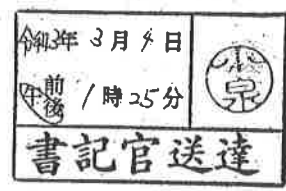 令和3年 3月4日
小泉
午 前後 1時25分
書記官送達